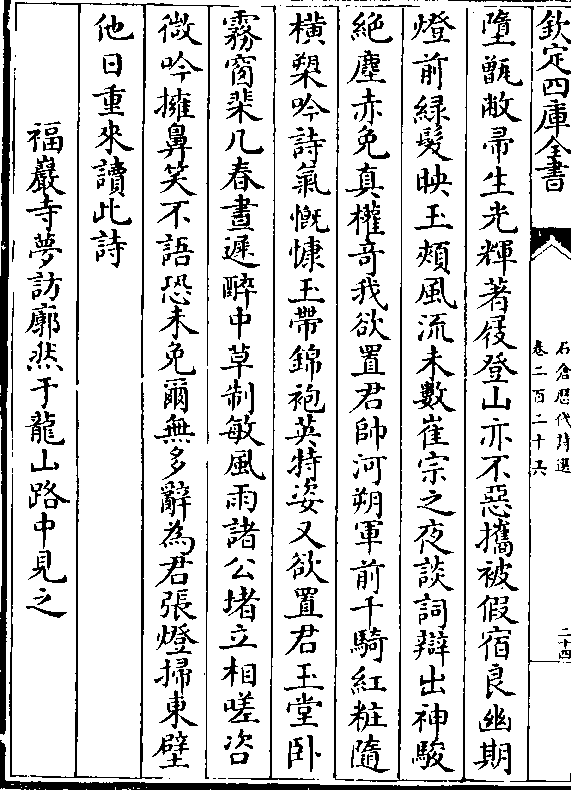 欽定四庫全書
石倉歷代詩選
卷二百二十五
二十四
墮甑敝帚生光輝著屐登山亦不惡攜被假宿良幽期
燈前緑髮映玉頰風流未數崔宗之夜談詞辯出神駿
絶塵赤免真權奇我欲置君帥河朔軍前千騎紅粧隨
橫槊吟詩氣慨慷玉帶錦袍英特姿又欲置君玉堂卧
霧窗棐几春晝遲醉中草制敏風雨諸公堵立相嗟咨
微吟擁鼻笑不語恐未免爾無多辭為君張燈掃東壁
他日重來讀此詩
福巖寺夢訪廓然于龍山路中見之